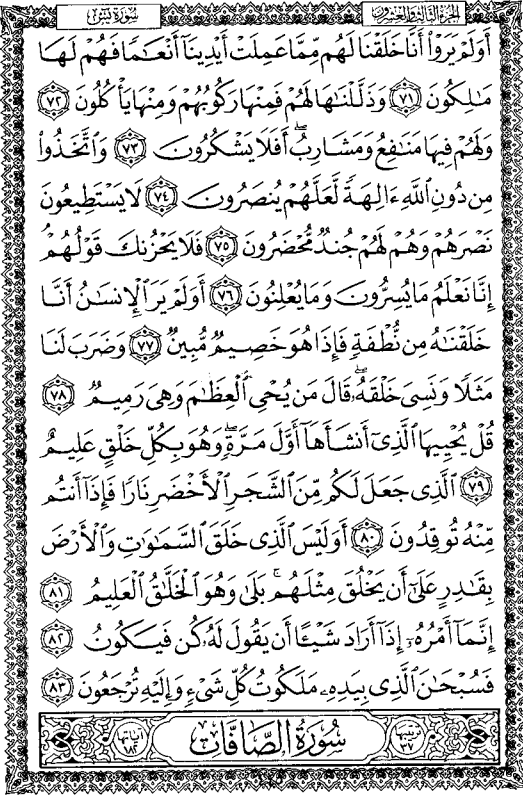 الجزء الثالث والعشرون
سورة يس
أَوَلَمْ يَرَوْا۟ أَنَّا خَلَقْنَا لَهُم مِّمَّا عَمِلَتْ أَيْدِينَآ أَنْعَـٰمًا فَهُمْ لَهَا
مَـٰلِكُونَ ٧١ وَذَلَّلْنَـٰهَا لَهُمْ فَمِنْهَا رَكُوبُهُمْ وَمِنْهَا يَأْكُلُونَ ٧٢
وَلَهُمْ فِيهَا مَنَـٰفِعُ وَمَشَارِبُ ۖ أَفَلَا يَشْكُرُونَ ٧٣ وَٱتَّخَذُوا۟
مِن دُونِ ٱللَّهِ ءَالِهَةً لَّعَلَّهُمْ يُنصَرُونَ ٧٤ لَا يَسْتَطِيعُونَ
نَصْرَهُمْ وَهُمْ لَهُمْ جُندٌ مُّحْضَرُونَ ٧٥ فَلَا يَحْزُنكَ قَوْلُهُمْ
إِنَّا نَعْلَمُ مَا يُسِرُّونَ وَمَا يُعْلِنُونَ ٧٦ أَوَلَمْ يَرَ ٱلْإِنسَـٰنُ أَنَّا
خَلَقْنَـٰهُ مِن نُّطْفَةٍ فَإِذَا هُوَ خَصِيمٌ مُّبِينٌ ٧٧ وَضَرَبَ لَنَا
مَثَلًا وَنَسِىَ خَلْقَهُۥ ۖ قَالَ مَن يُحْىِ ٱلْعِظَـٰمَ وَهِىَ رَمِيمٌ ٧٨
قُلْ يُحْيِيهَا ٱلَّذِىٓ أَنشَأَهَآ أَوَّلَ مَرَّةٍ ۖ وَهُوَ بِكُلِّ خَلْقٍ عَلِيمٌ
٧٩ ٱلَّذِى جَعَلَ لَكُم مِّنَ ٱلشَّجَرِ ٱلْأَخْضَرِ نَارًا فَإِذَآ أَنتُم
مِّنْهُ تُوقِدُونَ ٨٠ أَوَلَيْسَ ٱلَّذِى خَلَقَ ٱلسَّمَـٰوَٰتِ وَٱلْأَرْضَ
بِقَـٰدِرٍ عَلَىٰٓ أَن يَخْلُقَ مِثْلَهُم ۚ بَلَىٰ وَهُوَ ٱلْخَلَّـٰقُ ٱلْعَلِيمُ ٨١
إِنَّمَآ أَمْرُهُۥٓ إِذَآ أَرَادَ شَيْـًٔا أَن يَقُولَ لَهُۥ كُن فَيَكُونُ ٨٢
فَسُبْحَـٰنَ ٱلَّذِى بِيَدِهِۦ مَلَكُوتُ كُلِّ شَىْءٍ وَإِلَيْهِ تُرْجَعُونَ ٨٣
ترتيبها ٣٧ سُورَةُ الصَّافَّاتِ آياتها ١٨٢